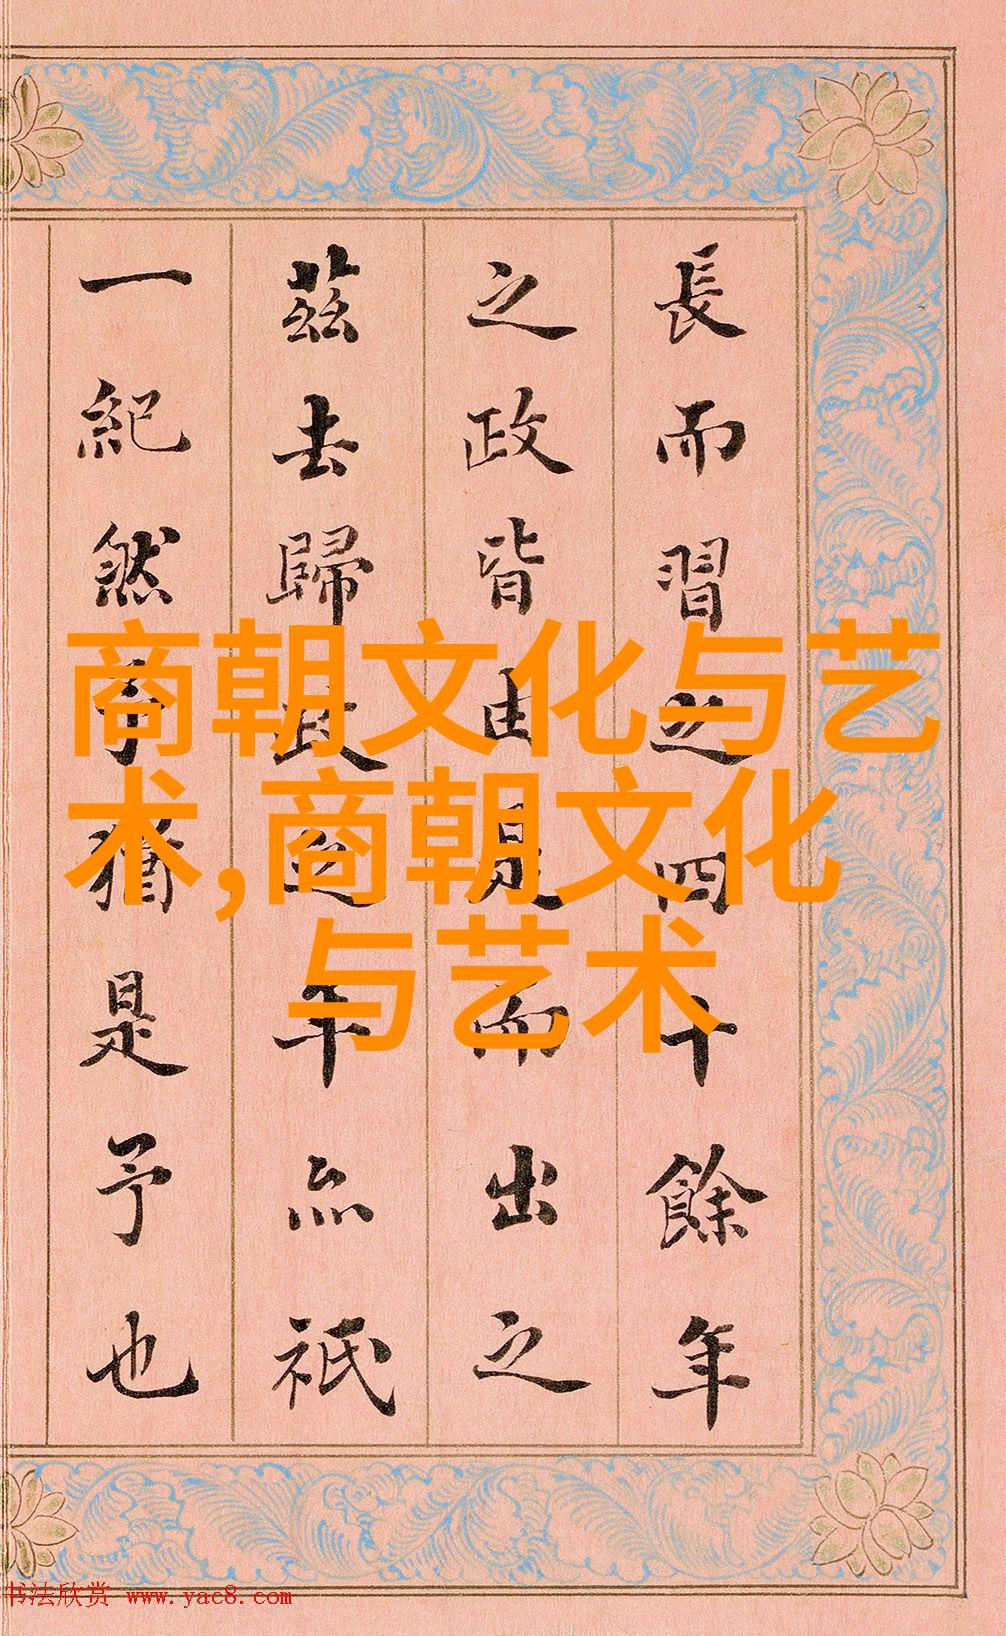 長而習之四十餘年
之政皆由是而出之
茲去歸政年亦祇
一紀然予猶是予也
商朝文化与艺
术,商朝文化
与艺术
书法欣赏 www.yac8.com